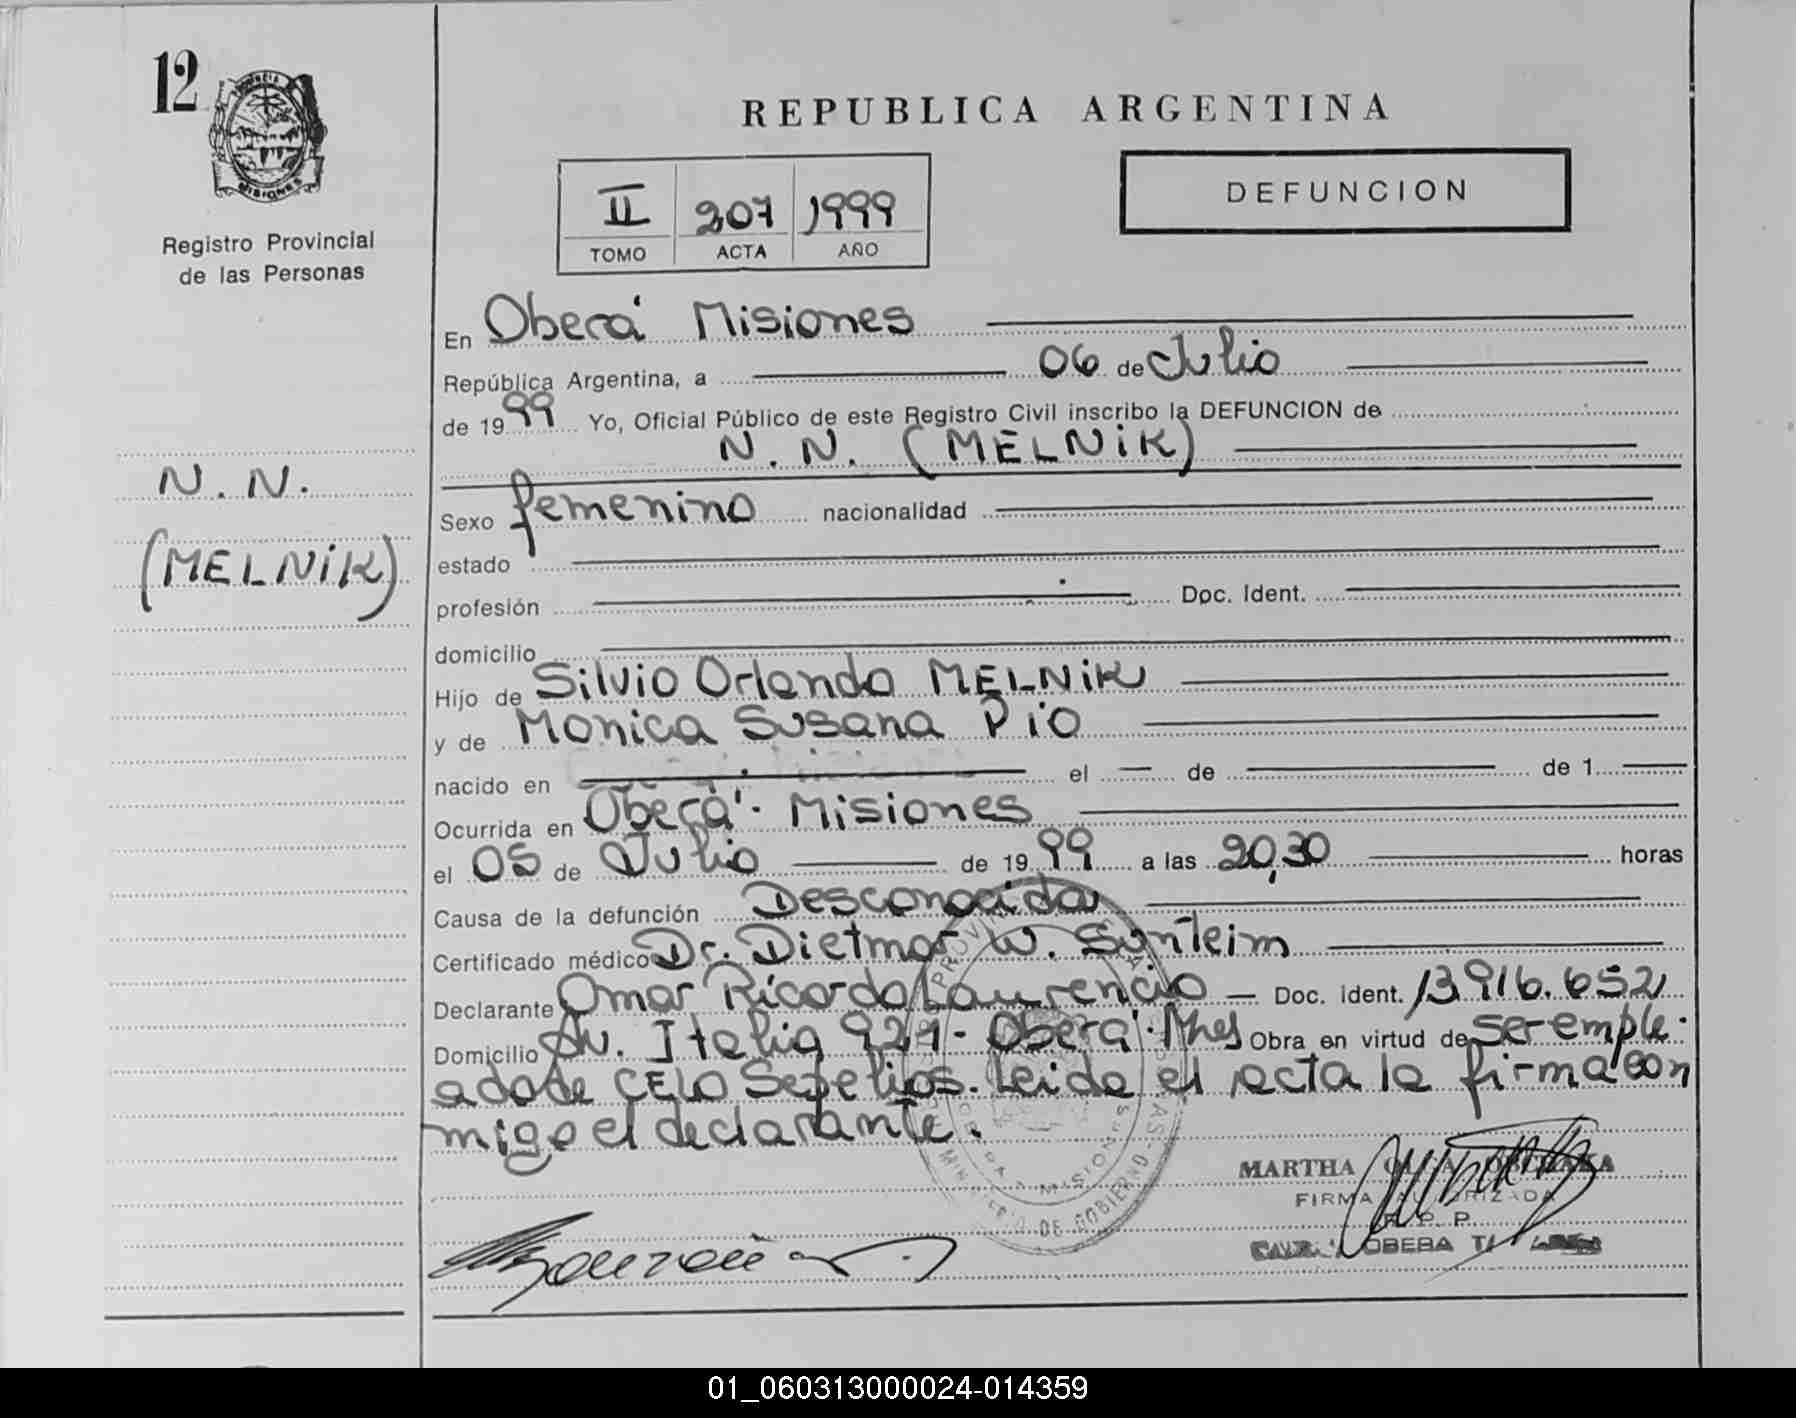 12
PROVINCIA
MISIONES
Registro Provincial
de las Personas
N. N.
(MELNiK)
REPUBLICA ARGENTINA
DEFUNCION
II 207 1999
TOMO ACTA AÑO
En Oberá Misiones
República Argentina, a 06 de Julio
de 1999 Yo, Oficial Público de este Registro Civil inscribo la DEFUNCION de
N. N. (MELNiK)
Sexo femenino nacionalidad
estado
profesión Doc. Ident.
domicilio
Hijo de Silvio Orlando MELNiK
y de Monica Susana Pio
nacido en el de de 1
Ocurrida en Oberá. Misiones
el 05 de Julio de 1999 a las 20,30 horas
Causa de la defunción Desconocida
Certificado médico Dr. Dietmar W.
Declarante Omar Ricardo Laurencio — Doc. Ident. 13916.652
Domicilio Av. Italia 921- Oberá. Mnes Obra en virtud de ser emple-
ado de CELO Sepelios. Leida el acta la firma con
migo el declarante.
MARTHA OLGA
FIRMA AUTORIZADA
R. P. P.
OBERA
MINISTERIO DE GOBIERNO
MISIONES
01_060313000024-014359